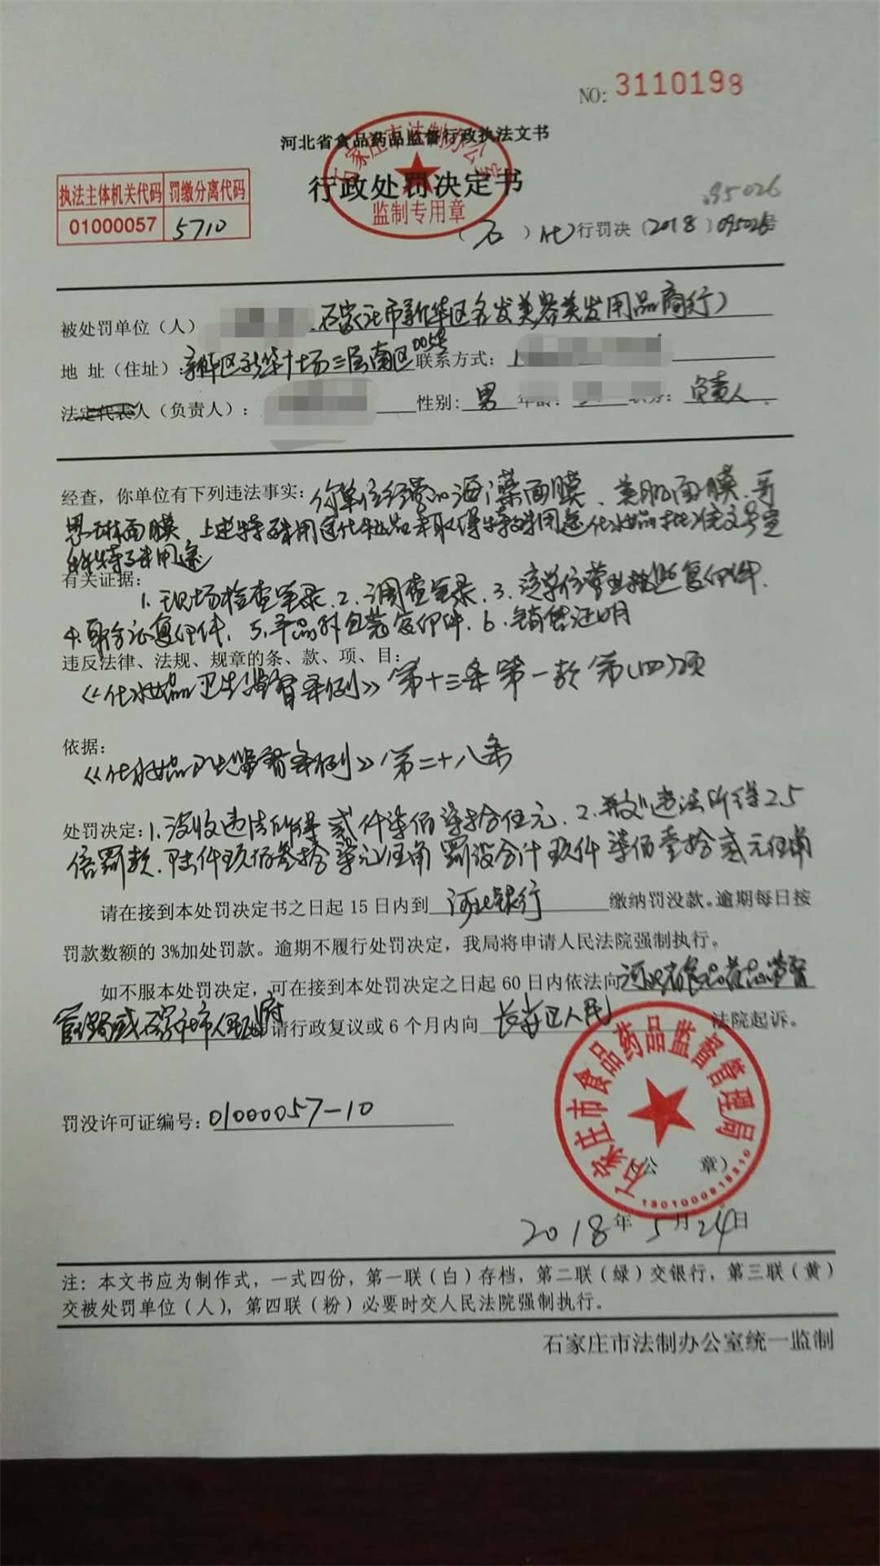 NO: 3110198
河北省食品药品监督行政执法文书
石家庄市法制办公室
监制专用章
行政处罚决定书
执法主体机关代码 罚缴分离代码
01000057 5710
095026
(石)化行罚决〔2018〕095026号
被处罚单位(人) 石家庄市新华区名发美容美发用品商行)
地 址(住址): 新华区新华广场三层南区0058 联系方式:
人(负责人): 性别: 男 负责人
经查,你单位有下列违法事实: 你单位经营的海藻面膜、美肌面膜、
面膜,上述特殊用途化妆品未取得特殊用途化妆品批准文号宣
称特殊用途
有关证据:
1.现场检查笔录.2.调查笔录.3.该单位营业执照复印件.
4.身份证复印件.5.产品外包装复印件.6.销售证明
违反法律、法规、规章的条、款、项、目:
《化妆品卫生监督条例》第十二条第一款第(四)项
依据:
《化妆品卫生监督条例》第二十八条
处罚决定:1.没收违法所得贰仟柒佰柒拾伍元.2.并处违法所得2.5
倍罚款.陆仟玖佰叁拾柒元伍角 罚没合计玖仟柒佰壹拾贰元伍角
请在接到本处罚决定书之日起 15 日内到 河北银行 缴纳罚没款。逾期每日按
罚款数额的 3%加处罚款。逾期不履行处罚决定,我局将申请人民法院强制执行。
如不服本处罚决定,可在接到本处罚决定之日起 60 日内依法向河北省食品药品监督
管理局或石家庄市人民政府 请行政复议或 6 个月内向 长安区人民 法院起诉。
罚没许可证编号: 01000057-10
石家庄市食品药品监督管理局
(公 章)
2018年5月24日
注:本文书应为制作式,一式四份,第一联(白)存档,第二联(绿)交银行,第三联(黄)
交被处罚单位(人),第四联(粉)必要时交人民法院强制执行。
石家庄市法制办公室统一监制